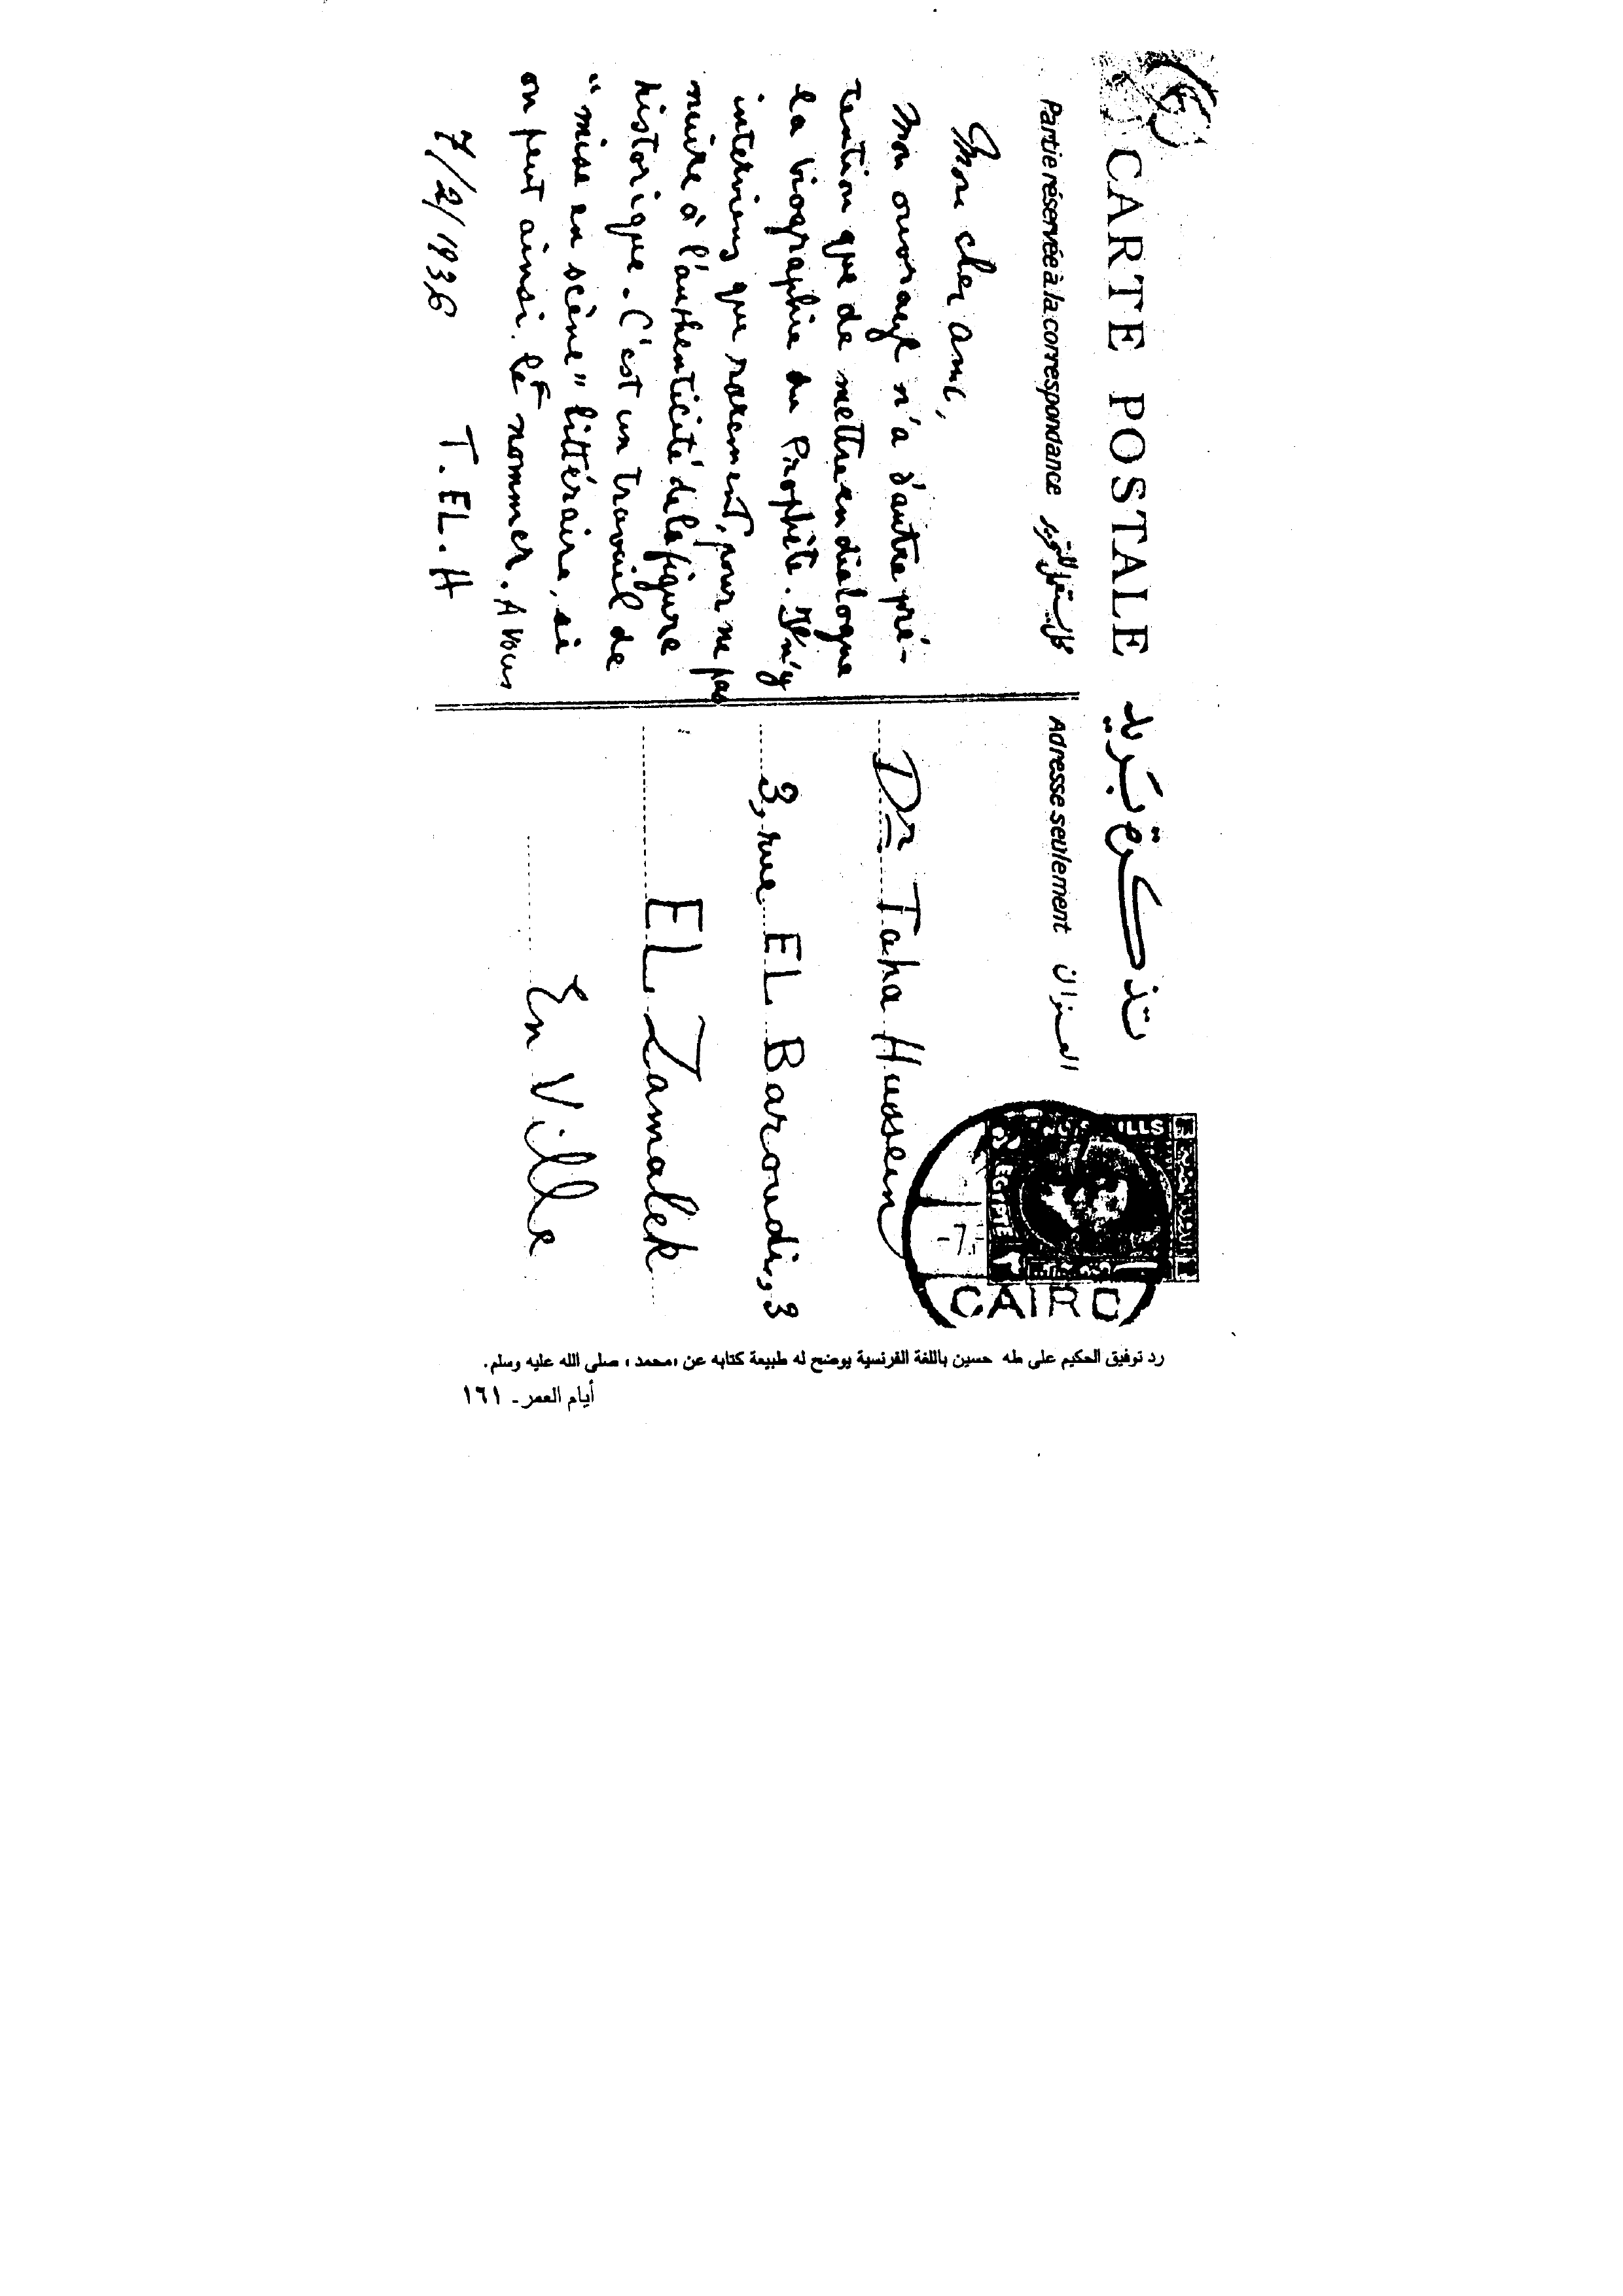 CARTE POSTALE تذكرة بريد
Partie réservée à la correspondance
Mon cher ami,
Mon ouvrage n'a d'autre pré-
tention que de mettre en dialogue
la biographie du Prophète. Je n'y
interviens que rarement, pour ne pas
nuire à l'authenticité de la figure
historique. C'est un travail de
"mise en scène" littéraire, si
on peut ainsi le nommer. A vous
7/2/1936 T. EL. H
Adresse seulement العنوان
Dr Taha Hussein
3, rue EL Baroudi, 3
EL Zamalek
En Ville
MILLS
EGYPTE
-7-
CAIRO
رد توفيق الحكيم على طه حسين باللغة الفرنسية يوضح له طبيعة كتابه عن «محمد» صلى الله عليه وسلم.
أيام العمر ـ ١٦١